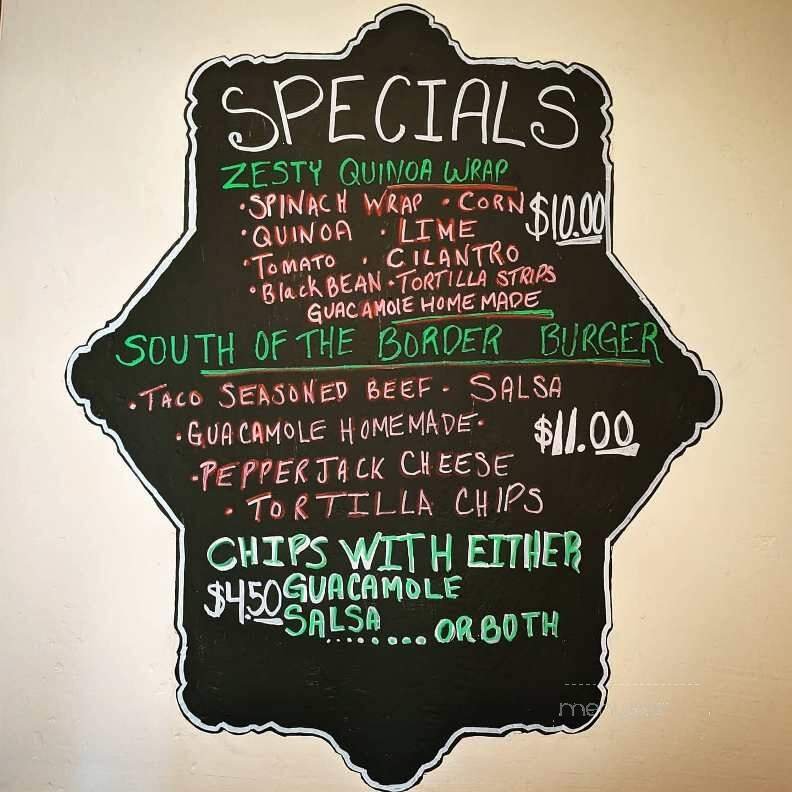 SPECIALS
ZESTY QUINOA WRAP
• SPINACH WRAP • CORN $10.00
• QUINOA • LIME
• TOMATO • CILANTRO
• BLacK BEAN • TORTILLA STRIPS
GUACAMOLE HOME MADE
SOUTH OF THE BORDER BURGER
• TACO SEASONED BEEF • SALSA
• GUACAMOLE HOMEMADE • $11.00
• PEPPERJACK CHEESE
• TORTILLA CHIPS
CHIPS WITH EITHER
$4.50 GUACAMOLE
SALSA ........ OR BOTH